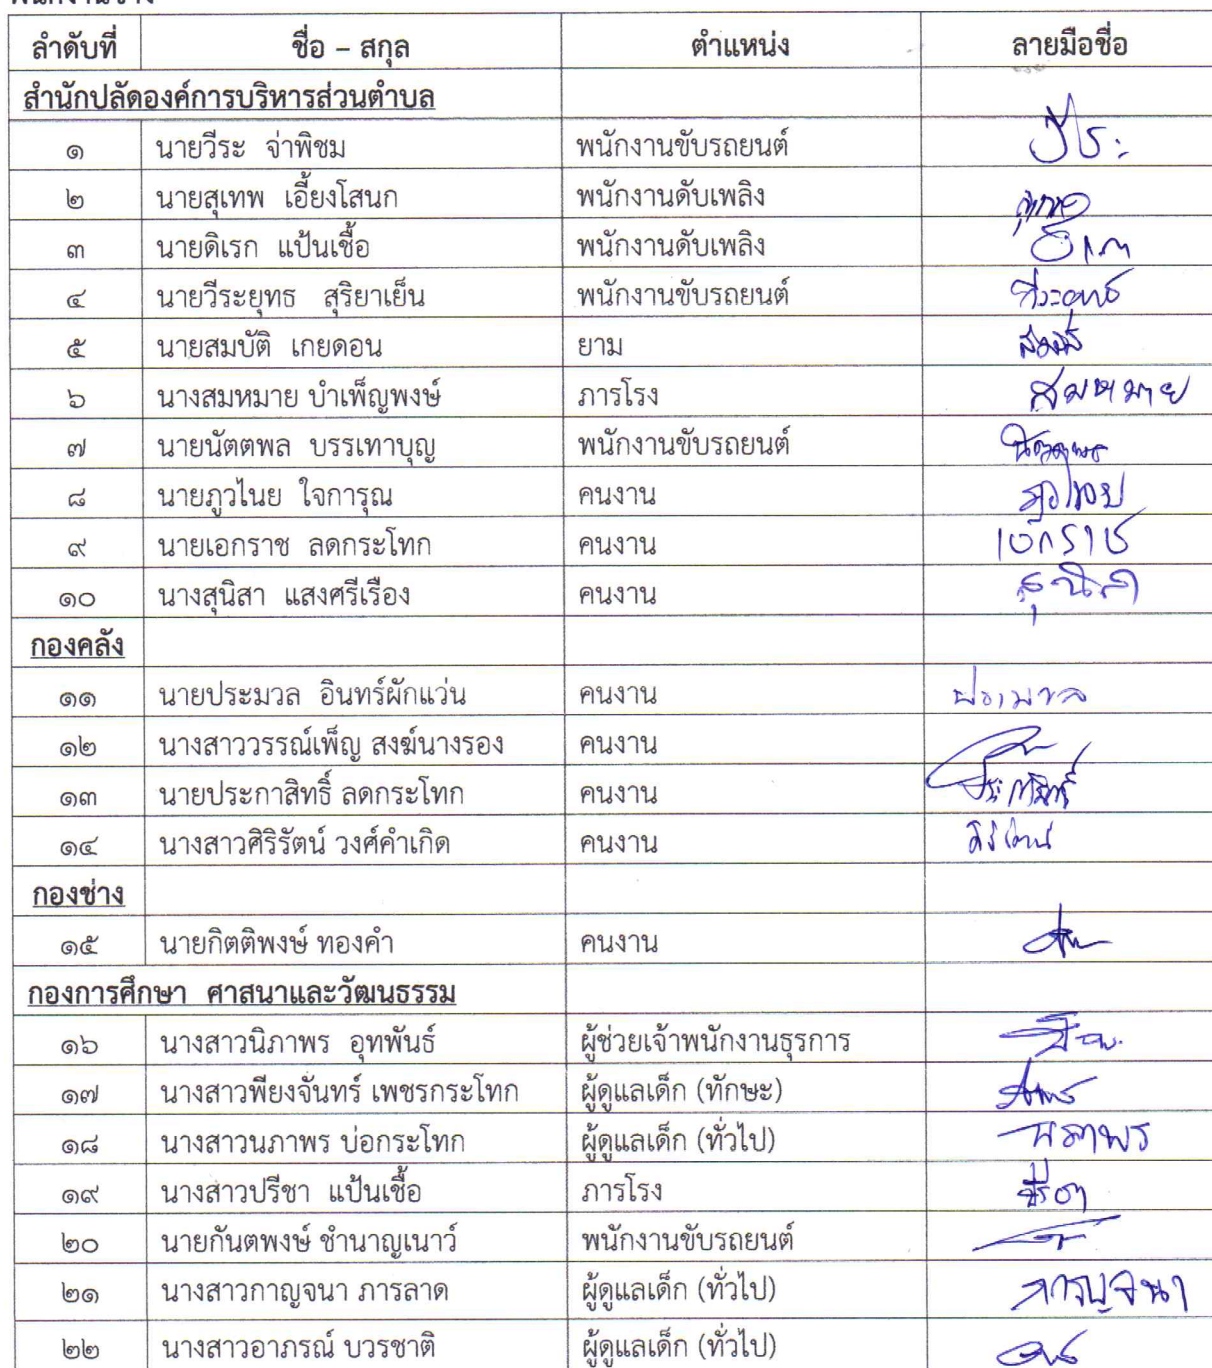 พนักงานจ้าง
ลำดับที่ ชื่อ – สกุล ตำแหน่ง ลายมือชื่อ
สำนักปลัดองค์การบริหารส่วนตำบล
๑ นายวีระ จ่าพิชม พนักงานขับรถยนต์ วีระ
๒ นายสุเทพ เอี้ยงโสนก พนักงานดับเพลิง สุเทพ
๓ นายดิเรก แป้นเชื้อ พนักงานดับเพลิง ดิเรก
๔ นายวีระยุทธ สุริยาเย็น พนักงานขับรถยนต์ วีระยุทธ
๕ นายสมบัติ เกยดอน ยาม สมบัติ
๖ นางสมหมาย บำเพ็ญพงษ์ ภารโรง สมหมาย
๗ นายนัตตพล บรรเทาบุญ พนักงานขับรถยนต์
๘ นายภูวไนย ใจการุณ คนงาน ภูวไนย
๙ นายเอกราช ลดกระโทก คนงาน เอกราช
๑๐ นางสุนิสา แสงศรีเรือง คนงาน สุนิสา
กองคลัง
๑๑ นายประมวล อินทร์ผักแว่น คนงาน ประมวล
๑๒ นางสาววรรณ์เพ็ญ สงฆ์นางรอง คนงาน
๑๓ นายประกาสิทธิ์ ลดกระโทก คนงาน ประกาสิทธิ์
๑๔ นางสาวศิริรัตน์ วงศ์คำเกิด คนงาน ศิริรัตน์
กองช่าง
๑๕ นายกิตติพงษ์ ทองคำ คนงาน
กองการศึกษา ศาสนาและวัฒนธรรม
๑๖ นางสาวนิภาพร อุทพันธ์ ผู้ช่วยเจ้าพนักงานธุรการ
๑๗ นางสาวพียงจันทร์ เพชรกระโทก ผู้ดูแลเด็ก (ทักษะ)
๑๘ นางสาวนภาพร บ่อกระโทก ผู้ดูแลเด็ก (ทั่วไป) นภาพร
๑๙ นางสาวปรีชา แป้นเชื้อ ภารโรง ปรีชา
๒๐ นายกันตพงษ์ ชำนาญเนาว์ พนักงานขับรถยนต์
๒๑ นางสาวกาญจนา ภารลาด ผู้ดูแลเด็ก (ทั่วไป) กาญจนา
๒๒ นางสาวอาภรณ์ บวรชาติ ผู้ดูแลเด็ก (ทั่วไป)